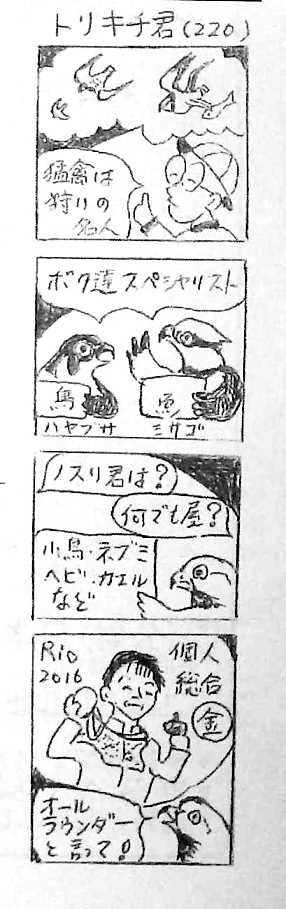 トリキチ君(220)
猛禽は
狩りの
名人
ボク達スペシャリスト
鳥
ハヤブサ
魚
ミサゴ
ノスリ君は?
何でも屋?
小鳥・ネズミ
ヘビ・カエル
など
Rio
2016
個人
総合
金
オール
ラウンダー
と言って!